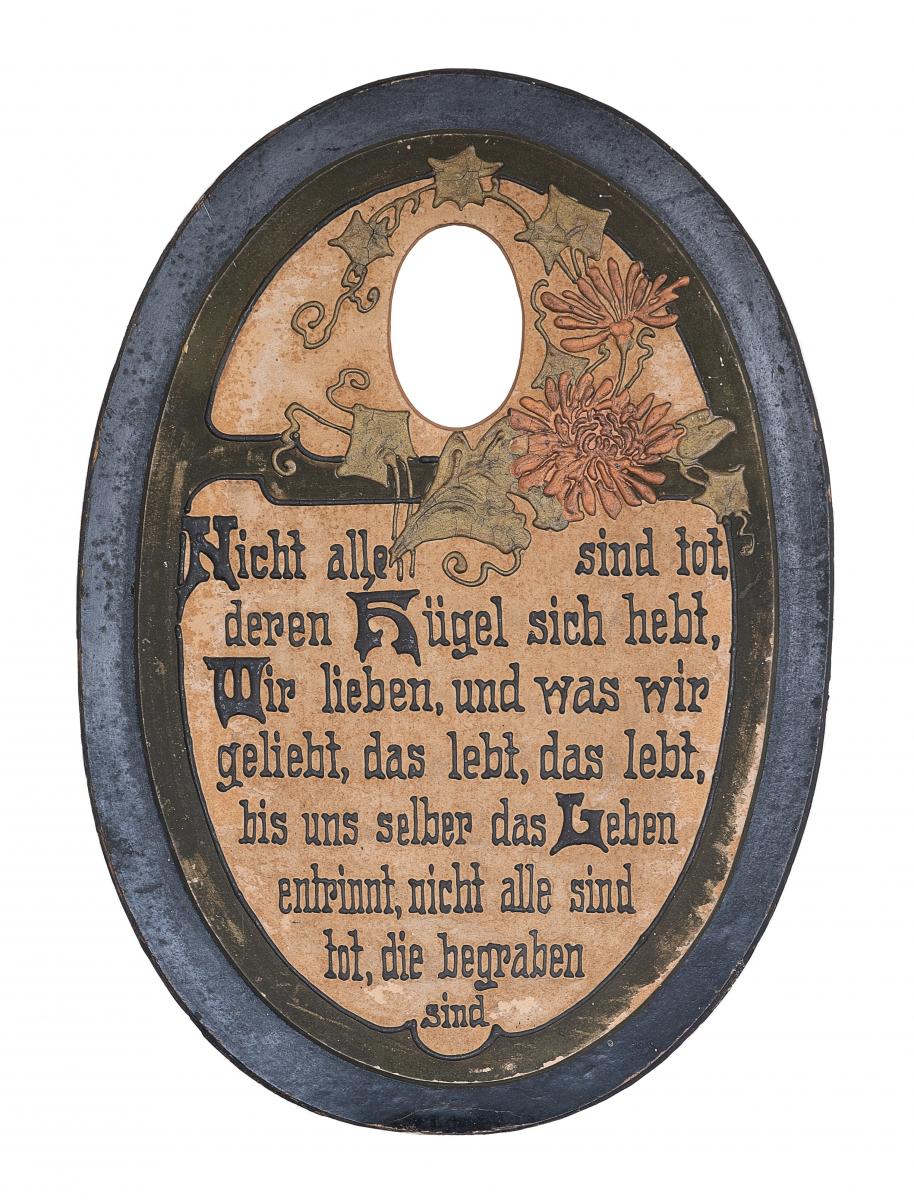 Nicht alle sind tot,
deren Hügel sich hebt,
Wir lieben, und was wir
geliebt, das lebt, das lebt,
bis uns selber das Leben
entrinnt, nicht alle sind
tot, die begraben
sind